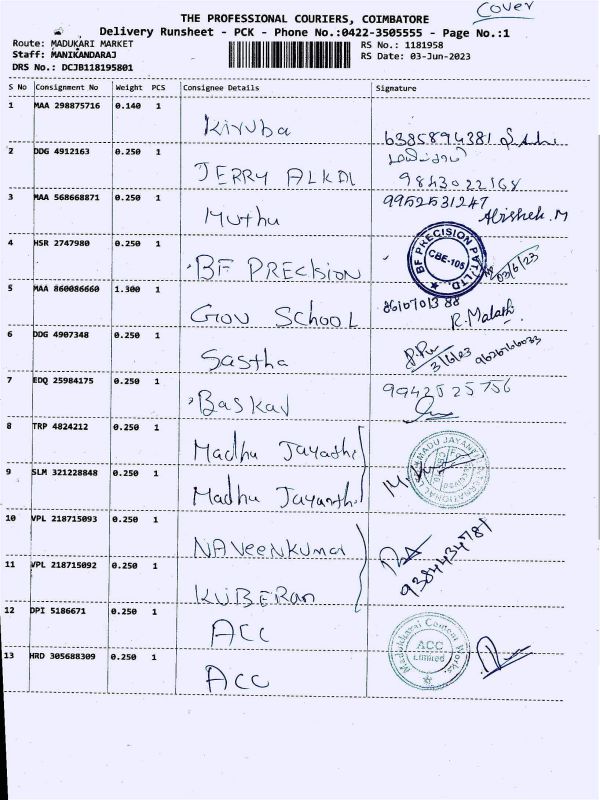 Cover
THE PROFESSIONAL COURIERS, COIMBATORE
Delivery Runsheet - PCK - Phone No.:0422-3505555 - Page No.:1
Route: MADUKARI MARKET RS No.: 1181958
Staff: MANIKANDARAJ RS Date: 03-Jun-2023
DRS No.: DCJB118195801
S No Consignment No Weight PCS Consignee Details Signature
1 MAA 298875716 0.140 1 Kiruba 6385894381
2 DDG 4912163 0.250 1 JERRY ALKDI 9843022168
3 MAA 568668871 0.250 1 Muthu 9952531247 Abishek. M
4 HSR 2747980 0.250 1 BF PRECISION BF PRECISION PVT. LTD. CBE-105 03/6/23
5 MAA 860086660 1.300 1 GOV SCHOOL 8610701388 R. Malath
6 DDG 4907348 0.250 1 Sastha 3/6/23
7 EDQ 25984175 0.250 1 Baskar 9942525756
8 TRP 4824212 0.250 1 Madhu Jayathi
9 SLM 321228848 0.250 1 Madhu Jayanthi
10 VPL 218715093 0.250 1 NAVeenKumar
11 VPL 218715092 0.250 1 KUBERan 9384434781
12 DPI 5186671 0.250 1 ACC
13 HRD 305688309 0.250 1 ACC Madukkarai Cement Works. ACC Limited